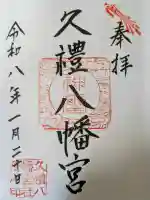 奉拝
久禮八幡宮
令和八年一月二十日